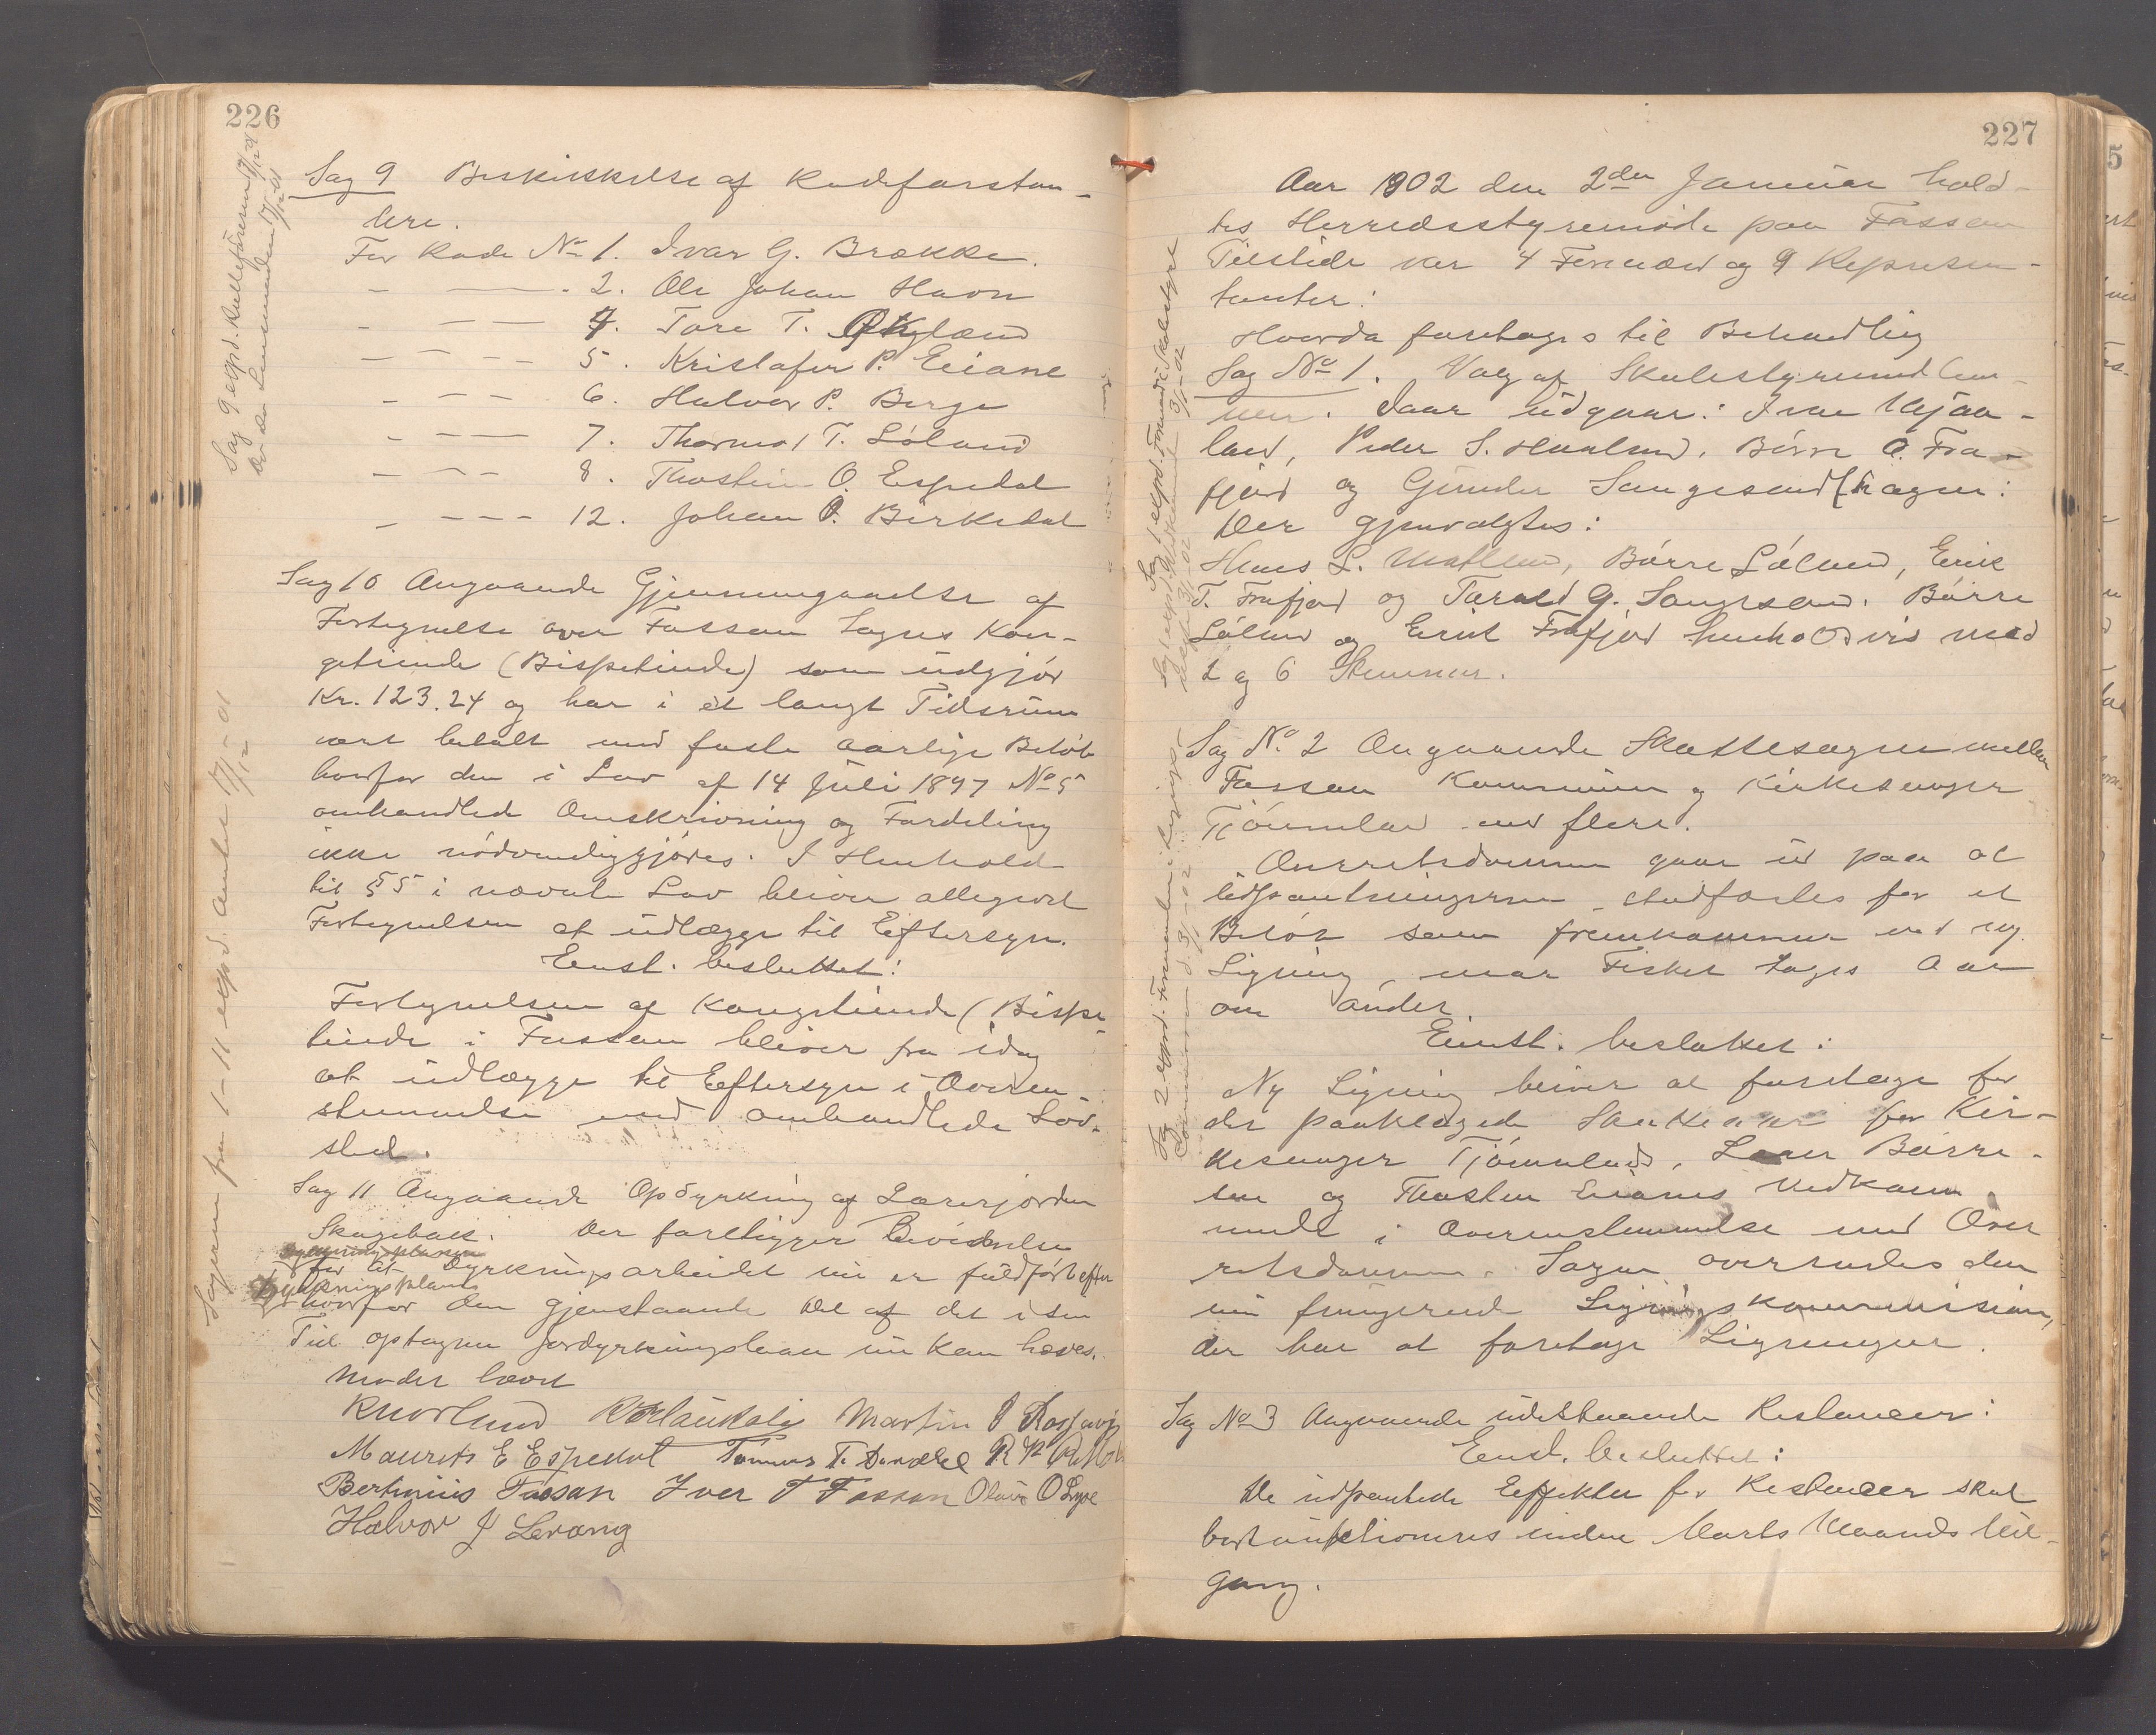 226
Sag 9 Beskikkelse af Rodeforstan-
dere.
For Rode No 1. Ivar G. Brække.
- — 2. Ole Johan Havn
- — 4. Tore T. Øfkyland
- — 5. Kristofer P. Eiane
- — 6. Halvor P. Berge
- — 7. Thormod T. Løland
- — 8. Thostein O. Espedal
- — 12. Johan O. Birkedal
Sag 10 Angaaende Gjennemgaaelse af
Fortegnelse over Fossan Sogns Kon-
getiende (Bispetiende) som udgjør
Kr. 123.24 og har i et langt Tidsrum
vært betalt med faste aarlige Beløb
hvorfor den i Lov af 14 Juli 1897 No 5
omhandlede Omskrivning og Fordeling
ikke nødvendiggjøres. I Henhold
til § 5 i nævnte Lov bliver allegevel
Fortegnelsen at udlægge til Eftersyn.
Eenst. besluttet:
Fortegnelsen af Kongetiende (Bispe-
tiende i Fossan bliver fra idag
at udlægge til Eftersyn i Overen-
stemmelse med omhandlede Lov-
sted.
Sag 11 Angaaende Opdyrkning af Lærerjorden
Skogebakk. Der foreligger Bevidnelse
for at Dyrkningsarbeidet nu er fuldført efter
Dyrkningsplanen
hvorfor den gjenstaaende Del af det i sin
Tid optagne Jorddyrkningslaan nu kan hæves.
Mødet hævet
R Norland Martin
Maurits E Espedal Tønnes T.
Bertinius Fossan Iver T Fossan Olaus O Lyse
Halvor J Levang
Sag 9 expd.
Sagerne fra 1-11 expd. Amtet 17/12-01
227
Aar 1902 den 2den Januar hold-
tes Herredsstyremøde paa Fossan
Tilstede var 4 Formænd og 9 Represen-
tanter:
Hvorda foretages til Behandling
Sag No 1. Valg af Skolestyremedlem-
mer. Iaar udgaar: Ivar
land, Peder S. Haaland, Børre O. Fra-
fjord og Gunder Songesand
Der gjenvalgtes:
Hans L. Mæland, Børre Løland, Erik
T. Frafjord og Tarald G. Songesand. Børre
Løland og Erik Frafjord henholdsvis med
2 og 6 Stemmer.
Sag No 2 Angaaende Skattesagen mellem
Fossan Kommune og Kirkesanger
Tjømland med flere.
Overretsdommen gaar ud paa at
Udpantningerne stadfæstes for et
Beløb som fremkommer ved ny
Ligning, naar Fisket tages Aar
om ander
Eenst. besluttet:
Ny Ligning bliver at foretage for
de paaklagede Skatter for Kir-
kesanger Tjømland, Lars Børre-
sen og Thosten Eianes Vedkom-
mende i Overenstemmelse med Over
retsdommen. Sagen oversendes den
nu fungerende Ligningskommission,
der har at foretage Ligningen.
Sag No 3 Angaaende udestaaende Restancer:
Eenst. besluttet:
De udpantede Effekter for Restancer skal
bortauktioneres inden Marts Maaneds Ud-
gang.